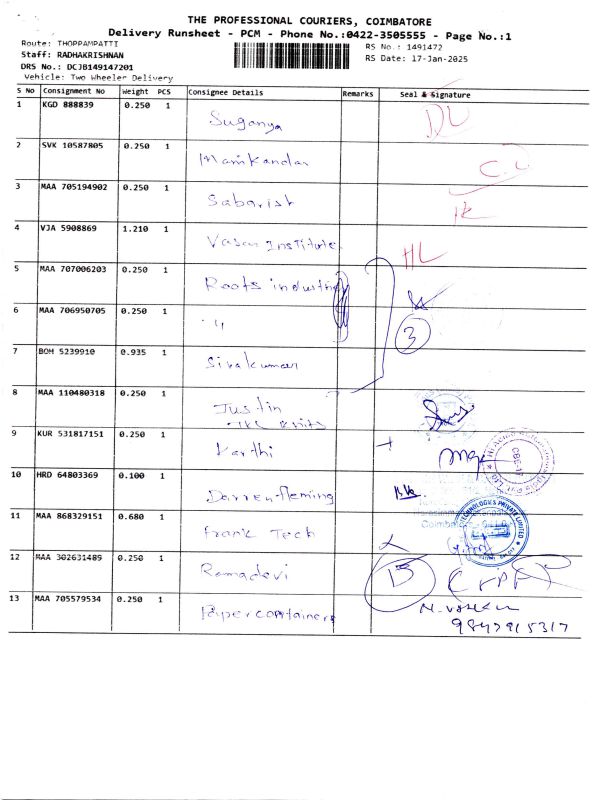 THE PROFESSIONAL COURIERS, COIMBATORE
Delivery Runsheet - PCM - Phone No.:0422-3505555 - Page No.:1
Route: THOPPAMPATTI RS No.: 1491472
Staff: RADHAKRISHNAN RS Date: 17-Jan-2025
DRS No.: DCJB149147201
Vehicle: Two Wheeler Delivery
S No Consignment No Weight PCS Consignee Details Remarks Seal & Signature
1 KGD 888839 0.250 1 Suganya DL
2 SVK 10587805 0.250 1 Manikandan
3 MAA 705194902 0.250 1 Sabarish
4 VJA 5908869 1.210 1 Vasan Institute HL
5 MAA 707006203 0.250 1 Roots industries
6 MAA 706950705 0.250 1 " 3
7 BOM 5239910 0.935 1 Sivakumar
8 MAA 110480318 0.250 1 Justin
9 KUR 531817151 0.250 1 Karthi
10 HRD 64803369 0.100 1 Darren fleming
11 MAA 868329151 0.680 1 frank Tech
TECHNOLOGIES PRIVATE LIMITED
12 MAA 302631489 0.250 1 Ramadevi
13 MAA 705579534 0.250 1 Paper containers
9847915317